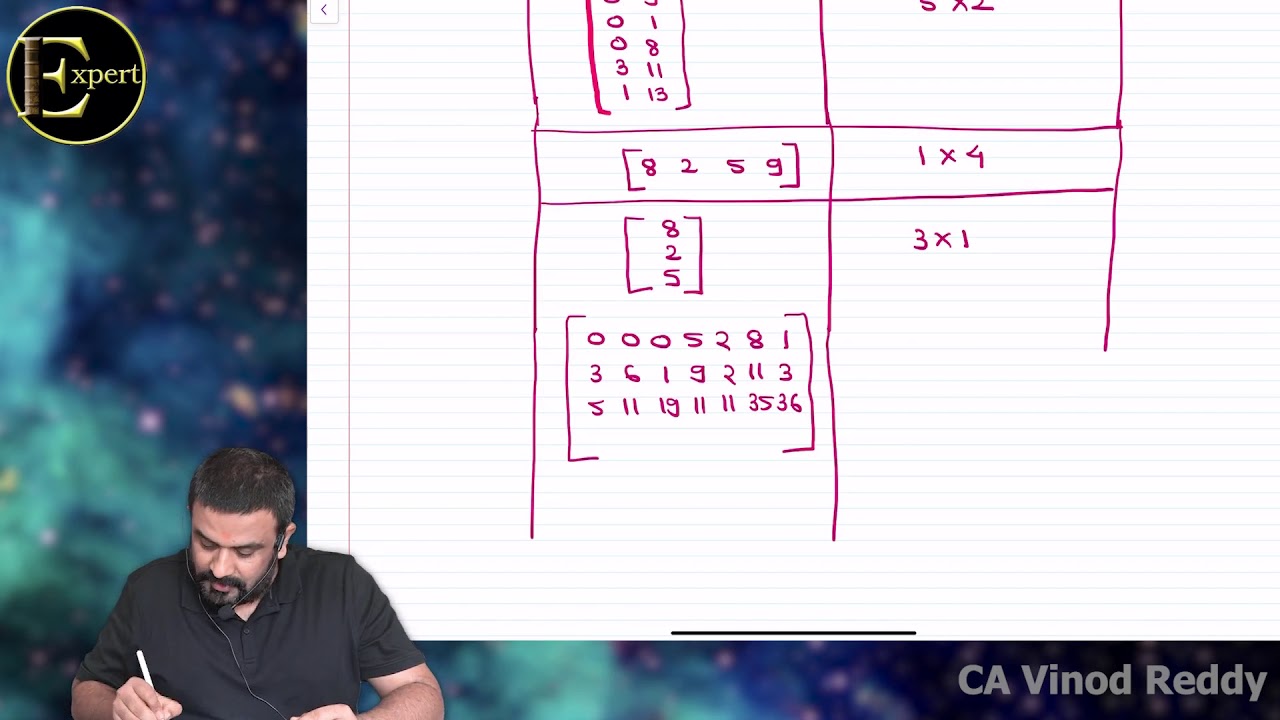 Expert
5 × 2
0 1
0 8
3 11
1 13
[8 2 5 9] 1 × 4
8
2
5
3 × 1
0 0 0 5 2 8 1
3 6 1 9 2 11 3
5 11 19 11 11 35 36
CA Vinod Reddy